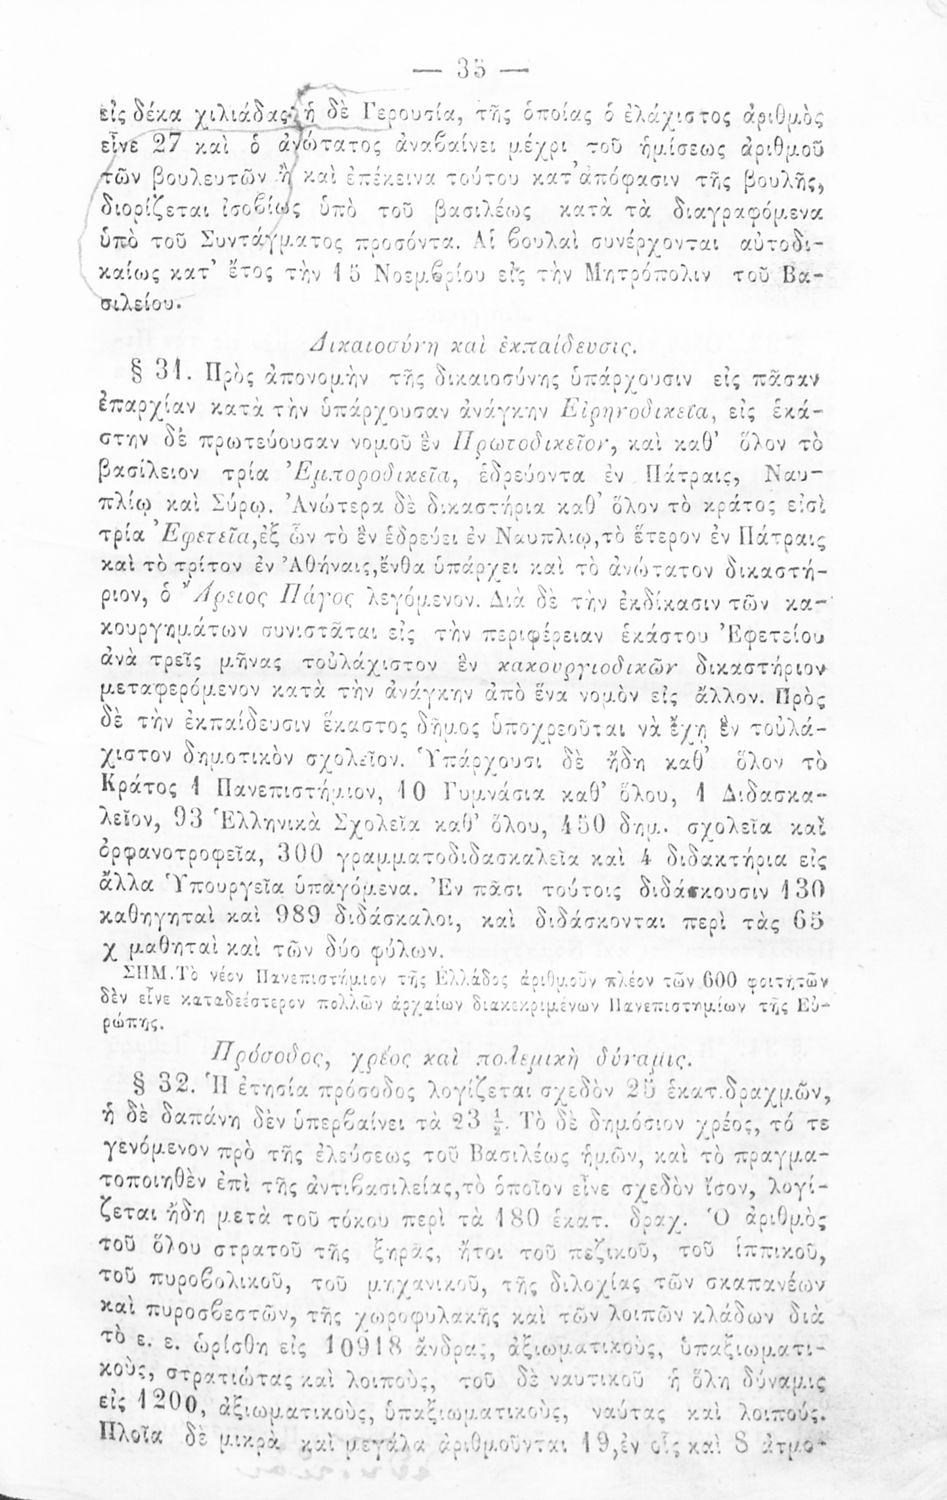 — 35 —
εἰς δέκα χιλιάδας· ἡ δὲ Γερουσία, τῆς ὁποίας ὁ ἐλάχιστος ἀριθμὸς
εἶνε 27 καὶ ὁ ἀνώτατος ἀναβαίνει μέχρι τοῦ ἡμίσεως ἀριθμοῦ
τῶν βουλευτῶν ἢ καὶ ἐπέκεινα τούτου κατ' ἀπόφασιν τῆς βουλῆς,
διορίζεται ἰσοβίως ὑπὸ τοῦ βασιλέως κατὰ τὰ διαγραφόμενα
ὑπὸ τοῦ Συντάγματος προσόντα. Αἱ βουλαὶ συνέρχονται αὐτοδι-
καίως κατ' ἔτος τὴν 15 Νοεμβρίου εἰς τὴν Μητρόπολιν τοῦ Βα-
σιλείου.
Δικαιοσύνη καὶ ἐκπαίδευσις.
§ 31. Πρὸς ἀπονομὴν τῆς δικαιοσύνης ὑπάρχουσιν εἰς πᾶσαν
ἐπαρχίαν κατὰ τὴν ὑπάρχουσαν ἀνάγκην Εἰρηνοδικεῖα, εἰς ἑκά-
στην δὲ πρωτεύουσαν νομοῦ ἓν Πρωτοδικεῖον, καὶ καθ' ὅλον τὸ
βασίλειον τρία Ἐμποροδικεῖα, ἑδρεύοντα ἐν Πάτραις, Ναυ-
πλίῳ καὶ Σύρῳ. Ἀνώτερα δὲ δικαστήρια καθ' ὅλον τὸ κράτος εἰσὶ
τρία Ἐφετεῖα, ἐξ ὧν τὸ ἓν ἑδρεύει ἐν Ναυπλίῳ, τὸ ἕτερον ἐν Πάτραις
καὶ τὸ τρίτον ἐν Ἀθήναις, ἔνθα ὑπάρχει καὶ τὸ ἀνώτατον δικαστή-
ριον, ὁ Ἄρειος Πάγος λεγόμενον. Διὰ δὲ τὴν ἐκδίκασιν τῶν κα-
κουργημάτων συνιστᾶται εἰς τὴν περιφέρειαν ἑκάστου Ἐφετείου
ἀνὰ τρεῖς μῆνας τοὐλάχιστον ἓν κακουργιοδικῶν δικαστήριον
μεταφερόμενον κατὰ τὴν ἀνάγκην ἀπὸ ἕνα νομὸν εἰς ἄλλον. Πρὸς
δὲ τὴν ἐκπαίδευσιν ἕκαστος δῆμος ὑποχρεοῦται νὰ ἔχῃ ἓν τοὐλά-
χιστον δημοτικὸν σχολεῖον. Ὑπάρχουσι δὲ ἤδη καθ' ὅλον τὸ
Κράτος 1 Πανεπιστήμιον, 10 Γυμνάσια καθ' ὅλου, 1 Διδασκα-
λεῖον, 93 Ἑλληνικὰ Σχολεῖα καθ' ὅλου, 450 δημ. σχολεῖα καὶ
ὀρφανοτροφεῖα, 300 γραμματοδιδασκαλεῖα καὶ 4 διδακτήρια εἰς
ἄλλα Ὑπουργεῖα ὑπαγόμενα. Ἐν πᾶσι τούτοις διδάσκουσιν 130
καθηγηταὶ καὶ 989 διδάσκαλοι, καὶ διδάσκονται περὶ τὰς 65
χ μαθηταὶ καὶ τῶν δύο φύλων.
ΣΗΜ. Τὸ νέον Πανεπιστήμιον τῆς Ἑλλάδος ἀριθμοῦν πλέον τῶν 600 φοιτητῶν
δὲν εἶνε καταδεέστερον πολλῶν ἀρχαίων διακεκριμένων Πανεπιστημίων τῆς Εὐ-
ρώπης.
Πρόσοδος, χρέος καὶ πολεμικὴ δύναμις.
§ 32. Ἡ ἐτησία πρόσοδος λογίζεται σχεδὸν 25 ἑκατ. δραχμῶν,
ἡ δὲ δαπάνη δὲν ὑπερβαίνει τὰ 23 ½. Τὸ δὲ δημόσιον χρέος, τό τε
γενόμενον πρὸ τῆς ἐλεύσεως τοῦ Βασιλέως ἡμῶν, καὶ τὸ πραγμα-
τοποιηθὲν ἐπὶ τῆς ἀντιβασιλείας, τὸ ὁποῖον εἶνε σχεδὸν ἴσον, λογί-
ζεται ἤδη μετὰ τοῦ τόκου περὶ τὰ 180 ἑκατ. δραχ. Ὁ ἀριθμὸς
τοῦ ὅλου στρατοῦ τῆς ξηρᾶς, ἤτοι τοῦ πεζικοῦ, τοῦ ἱππικοῦ,
τοῦ πυροβολικοῦ, τοῦ μηχανικοῦ, τῆς διλοχίας τῶν σκαπανέων
καὶ πυροσβεστῶν, τῆς χωροφυλακῆς καὶ τῶν λοιπῶν κλάδων διὰ
τὸ ε. ε. ὡρίσθη εἰς 10918 ἄνδρας, ἀξιωματικοὺς, ὑπαξιωματι-
κοὺς, στρατιώτας καὶ λοιποὺς, τοῦ δὲ ναυτικοῦ ἡ ὅλη δύναμις
εἰς 1200, ἀξιωματικοὺς, ὑπαξιωματικοὺς, ναύτας καὶ λοιπούς.
Πλοῖα δὲ μικρὰ καὶ μεγάλα ἀριθμοῦνται 19, ἐν οἷς καὶ 8 ἀτμο-